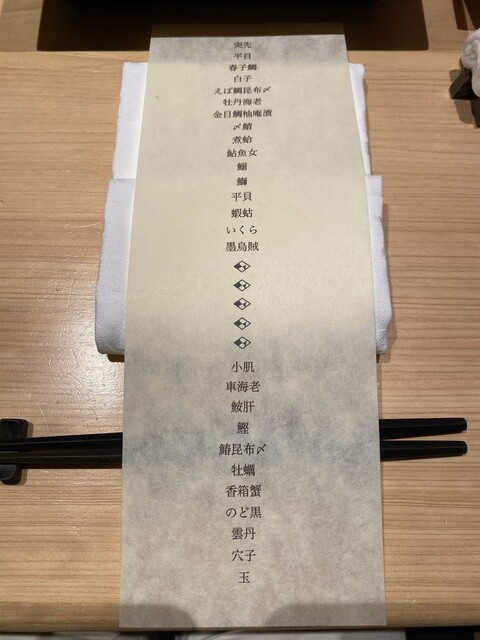 突先
平目
春子鯛
白子
えぼ鯛昆布〆
牡丹海老
金目鯛柚庵漬
〆鯖
煮蛤
鮎魚女
鰯
鰤
平貝
蝦蛄
いくら
墨烏賊
小肌
車海老
鮟肝
鰹
鰆昆布〆
牡蠣
香箱蟹
のど黒
雲丹
穴子
玉